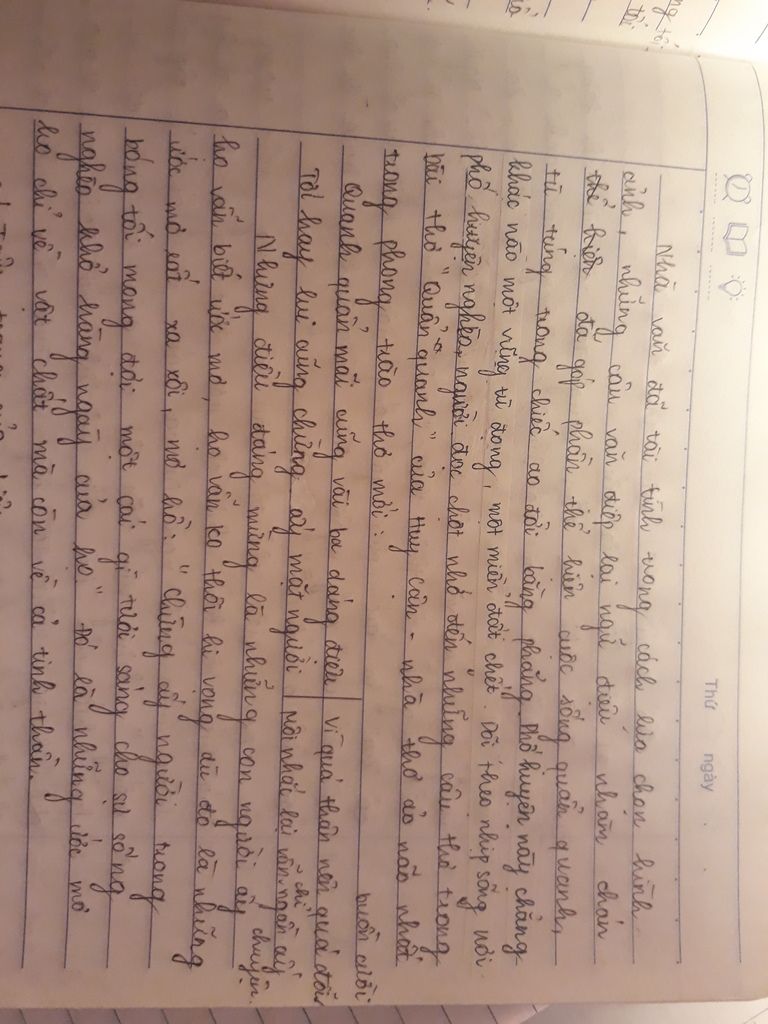 Thứ ngày
Nhà văn đã tài tình trong cách lựa chọn hình
ảnh, những câu văn điệp lại ngữ điệu nhàm chán
thể hiện đã góp phần thể hiện cuộc sống quẩn quanh,
tù túng trong chiếc ao đời bằng phẳng. Phố huyện này chẳng
khác nào một vũng tù đọng, một miền đất chết. Dõi theo nhịp sống nơi
phố huyện nghèo, người đọc chợt nhớ đến những câu thơ trong
bài thơ "Quẩn quanh" của Huy Cận - nhà thơ ảo não nhất
trong phong trào thơ mới:
Quanh quẩn mãi cũng vài ba dáng điệu
Tới hay lui cũng chừng ấy mặt người
Vì quá thân nên quá đỗi buồn cười
Môi nhắc lại vẫn chỉ ngần ấy chuyện.
Những điều đáng mừng là những con người ấy
họ vẫn biết ước mơ, họ vẫn ko thôi hi vọng dù đó là những
ước mơ rất xa xôi, mơ hồ: "chừng ấy người trong
bóng tối mong đợi một cái gì tươi sáng cho sự sống
nghèo khổ hàng ngày của họ" đó là những ước mơ
ko chỉ về vật chất mà còn về cả tinh thần.